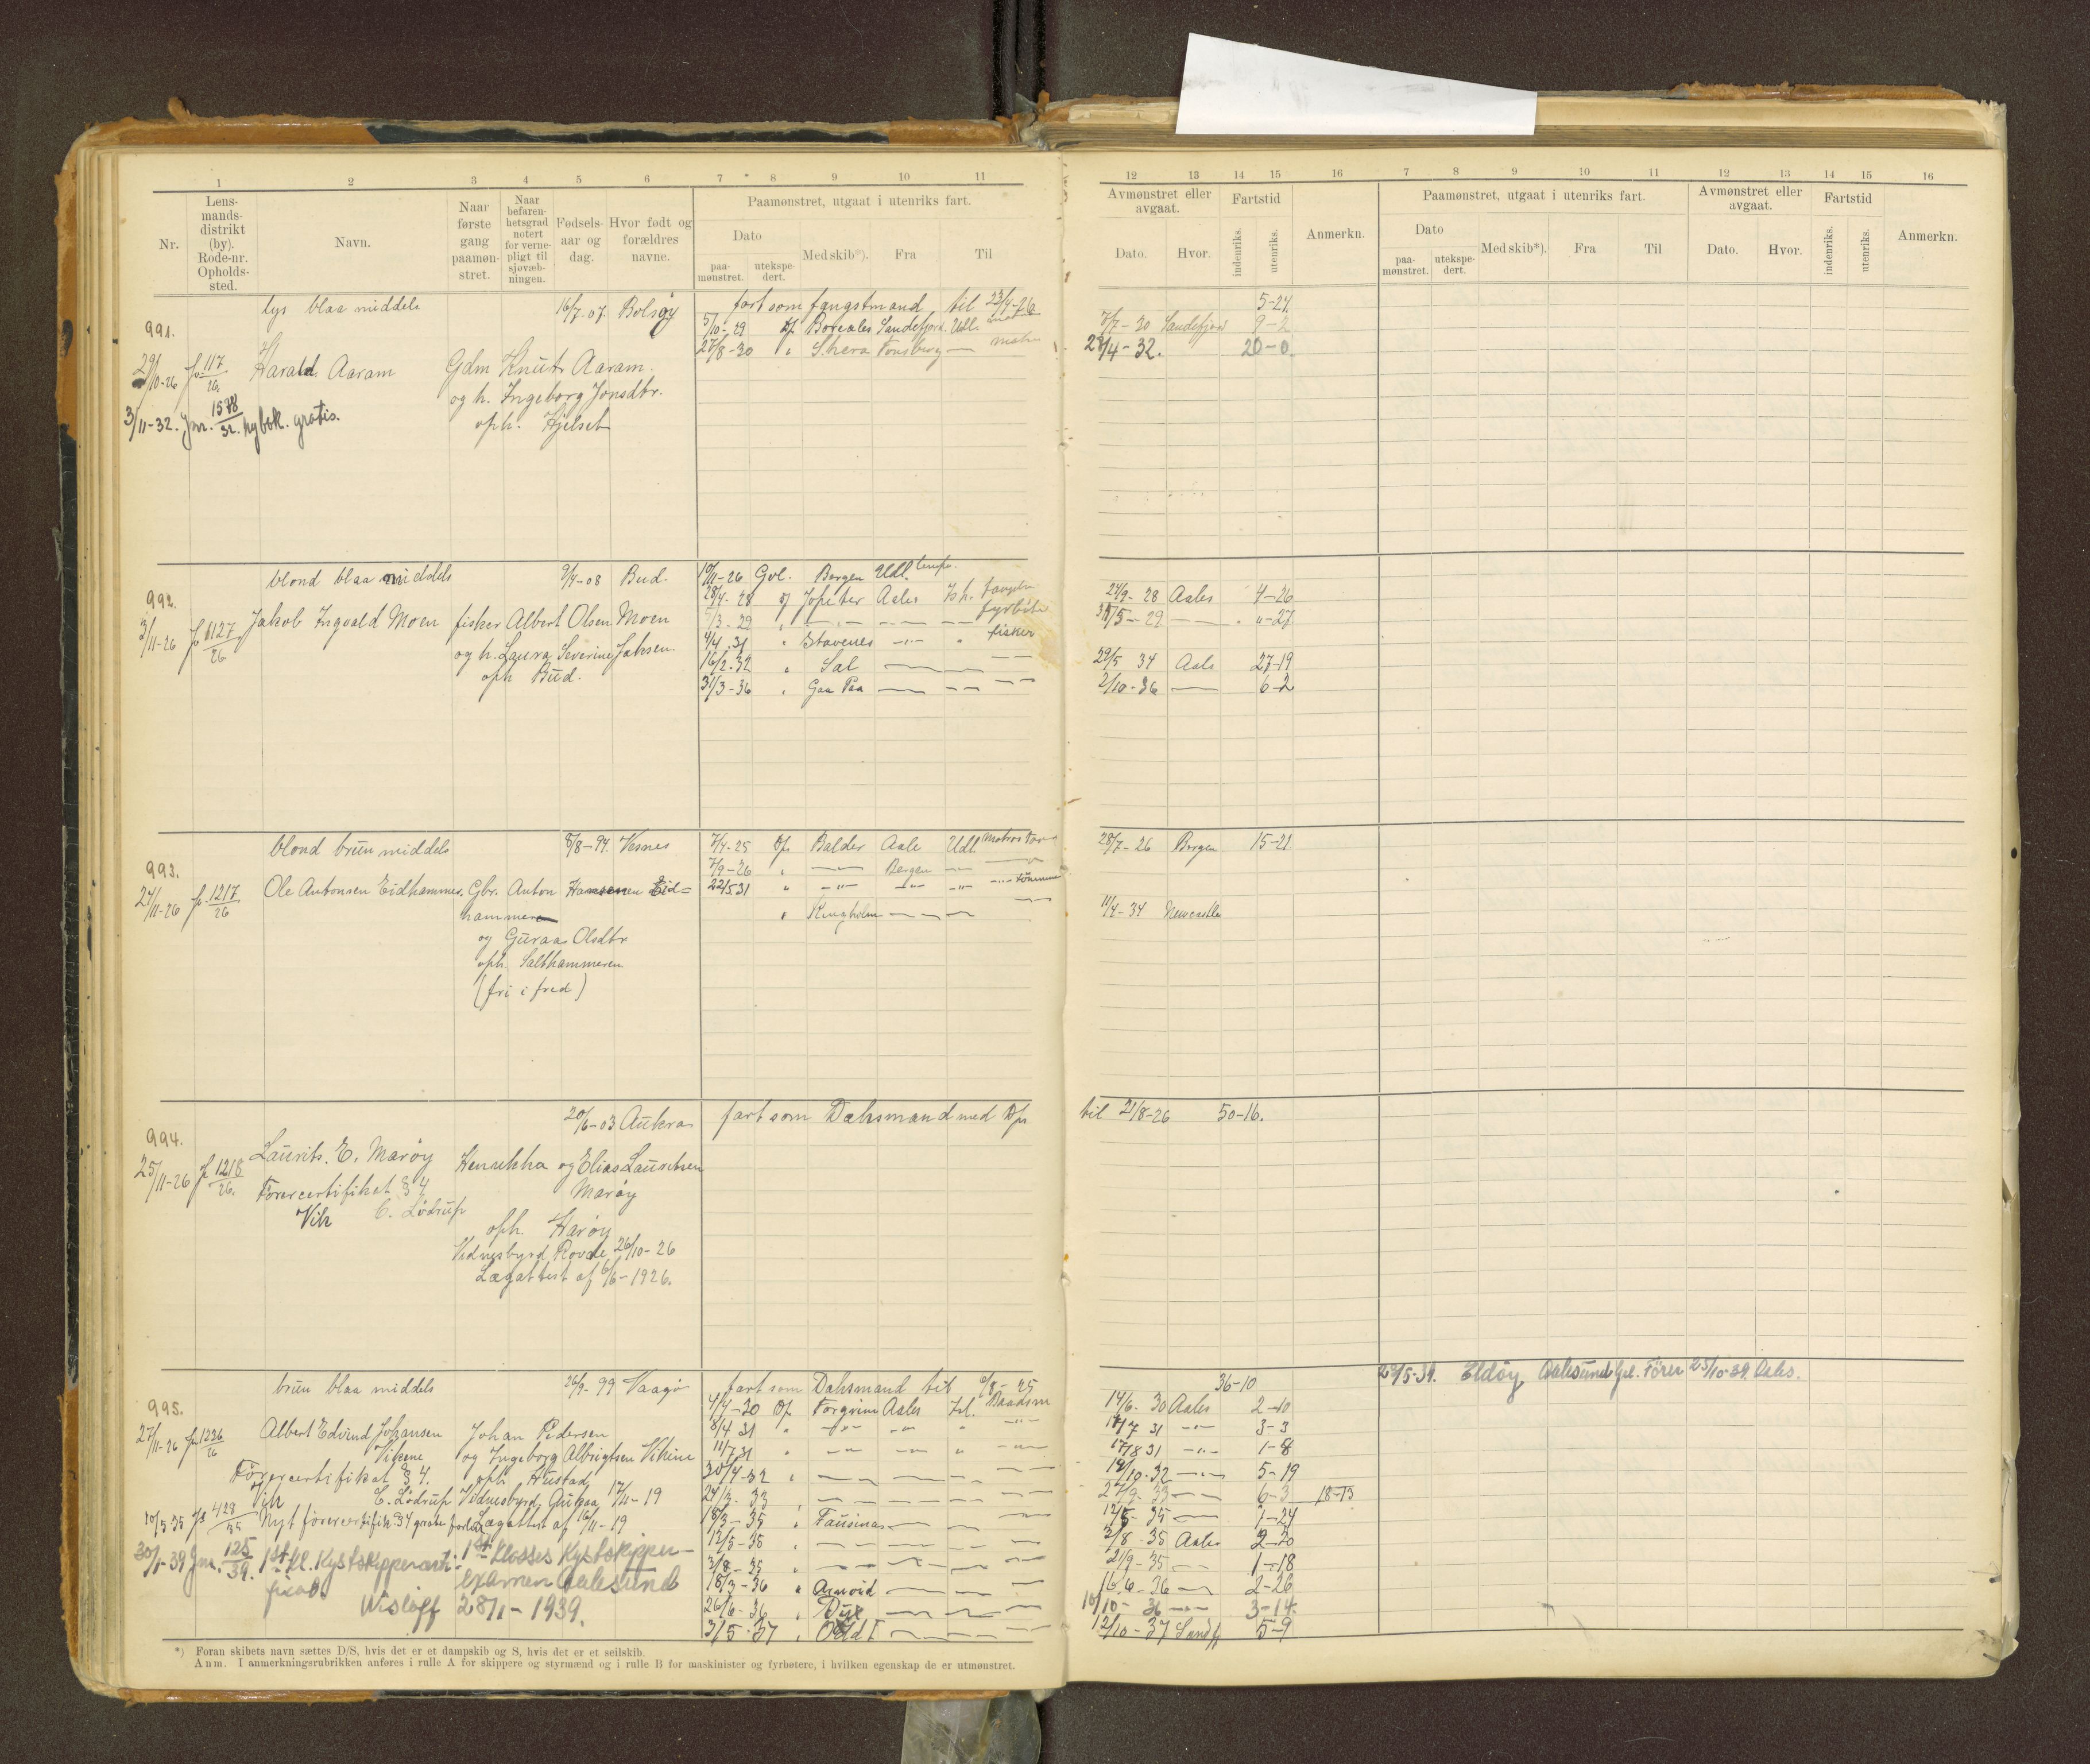 1 2 3 4 5 6 7 8 9 10 11
Nr.
Lens-
mands-
distrikt
(by).
Rode-nr.
Opholds-
sted.
Navn.
Naar
første
gang
paamøn-
stret.
Naar
befaren-
hetsgrad
notert
for verne-
pligt til
sjøvæb-
ningen.
Fødsels-
aar og
dag.
Hvor født og
forældres
navne.
Paamønstret, utgaat i utenriks fart.
Dato
paa-
mønstret.
utekspe-
dert.
Med skib*).
Fra
Til
991.
lys blaa middels 16/7-07. Bolsøy
29/10-26 117/26 Harald Aaram Gdm Knut Aaram.
og h. Ingeborg Jonsdtr.
oph. Hjelset
3/11-32. Jnr. 1578/32. ny bok. gratis.
fart som fangstmand til 23/4-26
5/10-29 Boreales Sandefjord Udl.
27/8-30 " Tønsberg
992.
blond blaa middels 9/4-08 Bud.
3/11-26 1127/26 Jakob Ingvald Moen fisker Albert Olsen Moen
og h. Laura Severine Jaksen.
oph Bud.
10/11-26 Gol. Bergen Udl.
28/4-28 Jopeter Aales Ish.
/3-29 " fyrbøter
4/4.31 " Stavenes -"- " fisker
16/2-32 " Sal
31/3-36 " Gaa Paa
993.
blond brun middels 8/8-94. Vesnes
24/11-26 1217/26 Ole Antonsen Eidhammer. Gbr. Anton Hansen Eid=
hammer
og Guraas Olsdtr
oph. Salthammeren
(fri i fred)
7/4-25 Balder Aale Udl Matros
7/9-26 " Bergen
22/5 31 " -"- -"- -"-
" Ringholm
994.
20/6-03 Aukra
25/11-26 1218/26. Laurits. E. Marøy Henrikka og Elias Lauritsen
Marøy
Førercertifikat § 4
Vik C. Lödrup
oph. Harøy
Vidnesbyrd, Rovde 26/10-26
Lægattest af 6/6-1926.
fart som Dæksmand med D/s
995.
brun blaa middels 26/9-99 Vaagø
27/11-26 1236/26 Albert Edvind Johansen Johan Pedersen
Vikene og Ingeborg Albrigtsen Vikene
Førercertifikat § 4. oph. Hustad
Vik C. Lödrup Vidnesbyrd, Aukraa 17/11-19
10/5 35 428/35 Nyt førercertifik § 4 Lægattest af 16/11-19
30/1-39 Jnr. 125/39. 1st kl. Kystskippercerti- 1st Klasses Kystskipper-
fikat. examen Aalesund
Wisløff 28/1-1939.
fart som Dæksmand til 6/8-25
4/4-30 Torgrim Aales Isl. Baadsm
8/4 31 " -"- -"- " -"-
11/7 31 " -"- -"- " -"-
30/4-32 "
24/3-33 "
18/3-35 " Fausinas
12/5-35 "
3/8-35 "
18/3-36 " Arnvid
26/6-36 " Dux
3/5-37 " Old I
*) Foran skibets navn sættes D/S, hvis det er et dampskib og S, hvis det er et seilskib.
Anm. I anmerkningsrubrikken anføres i rulle A for skippere og styrmænd og i rulle B for maskinister og fyrbøtere, i hvilken egenskap de er utmønstret.
12 13 14 15 16 7 8 9 10 11 12 13 14 15 16
Avmønstret eller
avgaat.
Dato.
Hvor.
Fartstid
indenriks.
utenriks.
Anmerkn.
Paamønstret, utgaat i utenriks fart.
Dato
paa-
mønstret.
utekspe-
dert.
Med skib*).
Fra
Til
Avmønstret eller
avgaat.
Dato.
Hvor.
Fartstid
indenriks.
utenriks.
Anmerkn.
5-27
7/7-30 Sandefjord 9-2
28/4-32. 20-0.
24/9-28 Aales 4-26
31/5-29 -27
29/5 34 Aale 27-19
2/10-36 6-2
28/7-26 Bergen 15-21
11/4-34 Newcastle
til 21/8-26 50-16.
36-10
29/5-39. Eldøy Aalesund Gol. Förer 25/10-39. Aales.
14/6-30 Aales 2-10
11/7 31 -"- 3-3
17/8 31 -"- 1-8
19/10-32 5-19
27/9-33 6-3 18-13
12/5-35 1-24
2/8-35 Aales 2-20
21/9-35 1-18
16.6-36 2-26
10/10-36 3-14
12/10-37 5-9